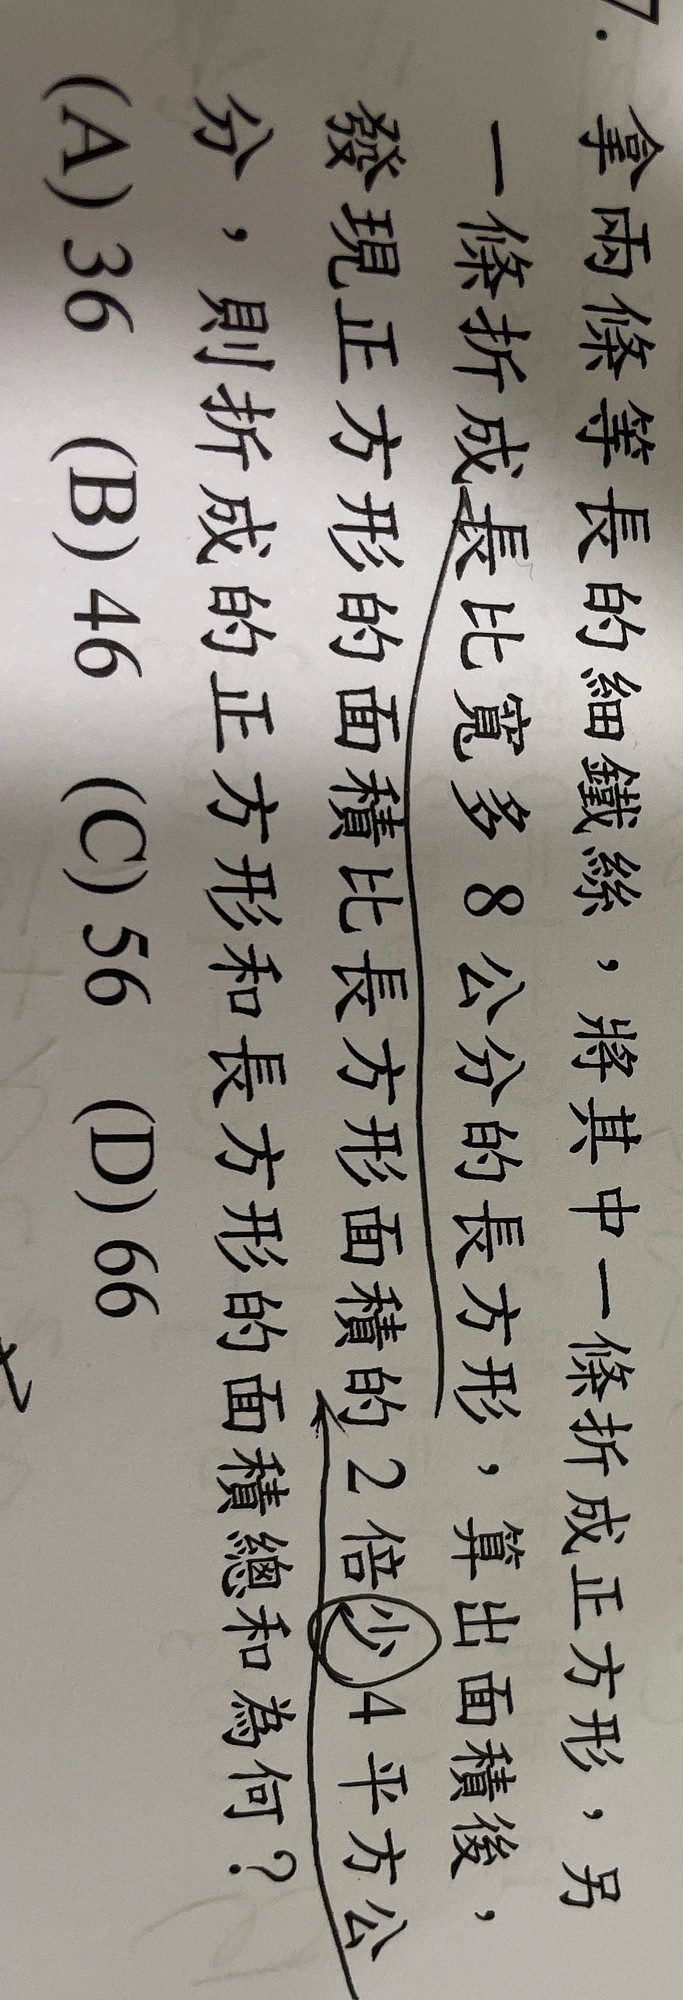 7. 拿兩條等長的細鐵絲，將其中一條折成正方形，另
一條折成長比寬多 8 公分的長方形，算出面積後，
發現正方形的面積比長方形面積的 2 倍少 4 平方公
分，則折成的正方形和長方形的面積總和為何？
(A) 36 (B) 46 (C) 56 (D) 66